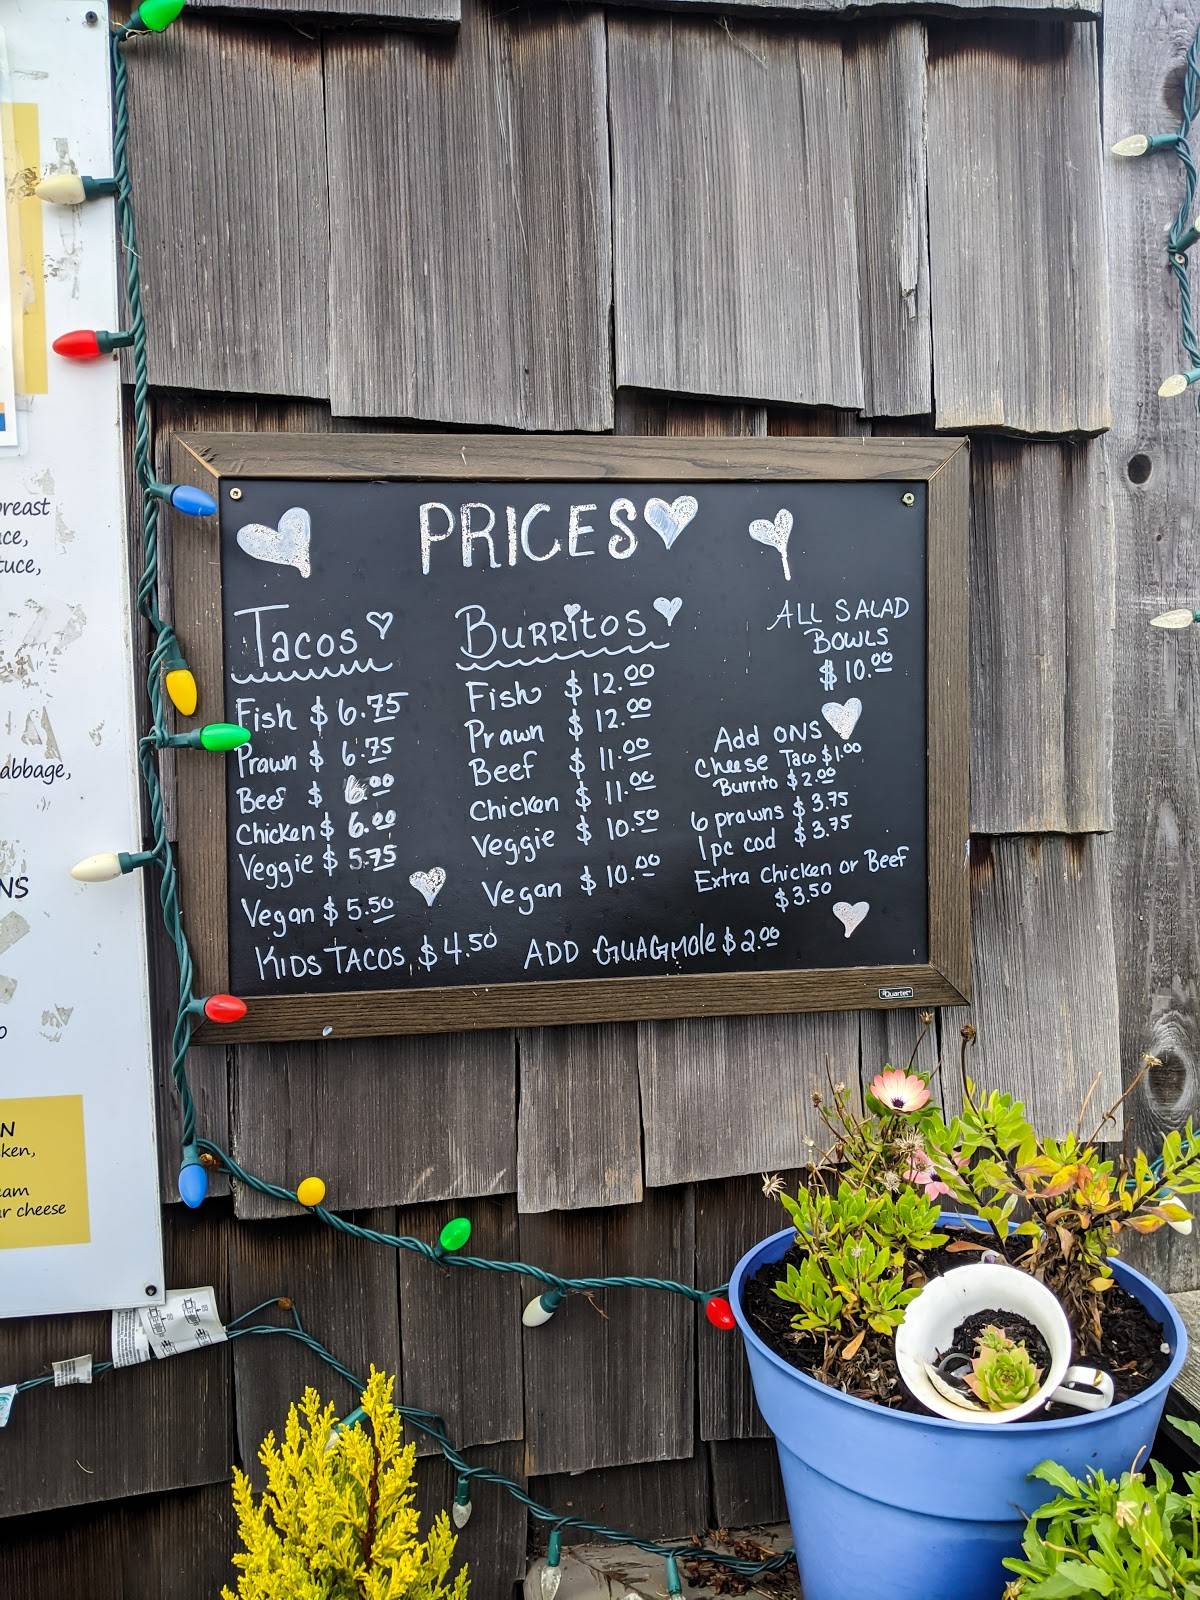 PRICES
Tacos
Fish $ 6.75
Prawn $ 6.75
Beef $ 6.00
Chicken $ 6.00
Veggie $ 5.75
Vegan $ 5.50
KIDS TACOS, $ 4.50
BURRITOS
Fish $ 12.00
Prawn $ 12.00
Beef $ 11.00
Chicken $ 11.00
Veggie $ 10.50
Vegan $ 10.00
ADD GUAGMOLE $ 2.00
ALL SALAD
BOWLS
$ 10.00
Add ONS
Cheese Taco $1.00
Burrito $2.00
6 prawns $ 3.75
1pc cod $ 3.75
Extra Chicken or Beef
$3.50
Quartet
breast
tuce,
abbage,
NS
N
ken,
r cheese